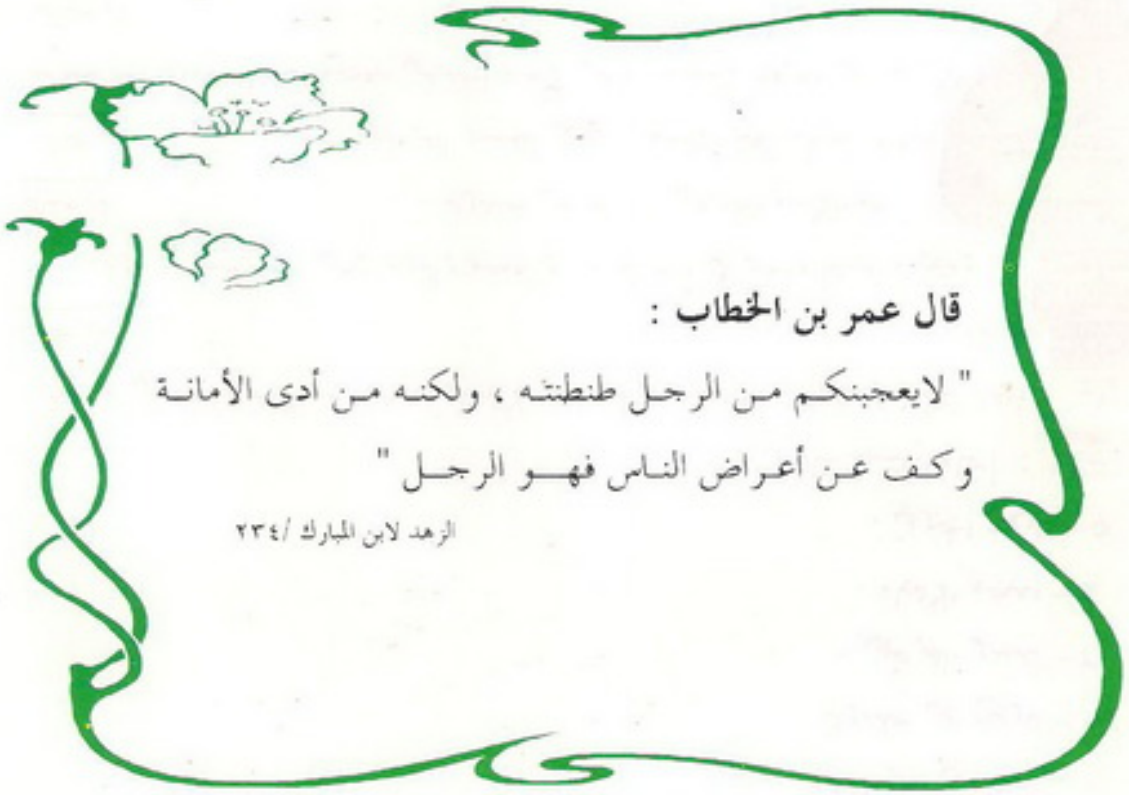 قال عمر بن الخطاب :
" لايعجبنكم من الرجل طنطنته ، ولكنه من أدى الأمانة
وكف عن أعراض الناس فهو الرجل "
الزهد لابن المبارك /٢٣٤